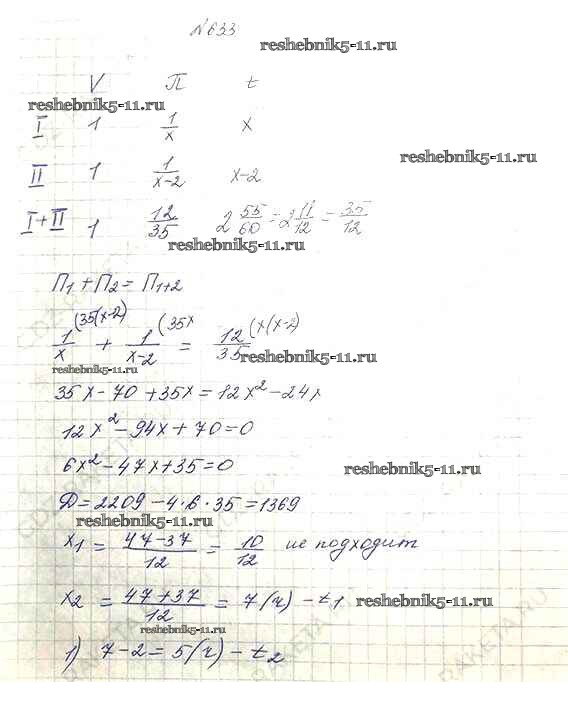 №633
reshebnik5-11.ru
V П t
reshebnik5-11.ru
I 1 1/x x
reshebnik5-11.ru
II 1 1/(x-2) x-2
I+II 1 12/35 2 55/60 = 2 11/12 = 35/12
reshebnik5-11.ru
П₁ + П₂ = П₁₊₂
1/x (35(x-2) + 1/(x-2) (35x = 12/35 (x(x-2)
reshebnik5-11.ru
reshebnik5-11.ru
35x - 70 + 35x = 12x² - 24x
12x² - 94x + 70 = 0
6x² - 47x + 35 = 0
reshebnik5-11.ru
D = 2209 - 4·6·35 = 1369
reshebnik5-11.ru
x₁ = (47-37)/12 = 10/12 не подходит
x₂ = (47+37)/12 = 7 (ч) - t₁
reshebnik5-11.ru
reshebnik5-11.ru
1) 7 - 2 = 5 (ч) - t₂